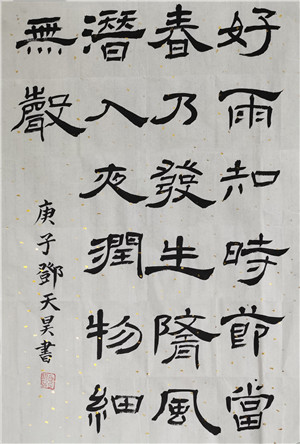 好雨知時節當
春乃發生隨風
潛入夜潤物細
無聲
庚子鄧天昊書